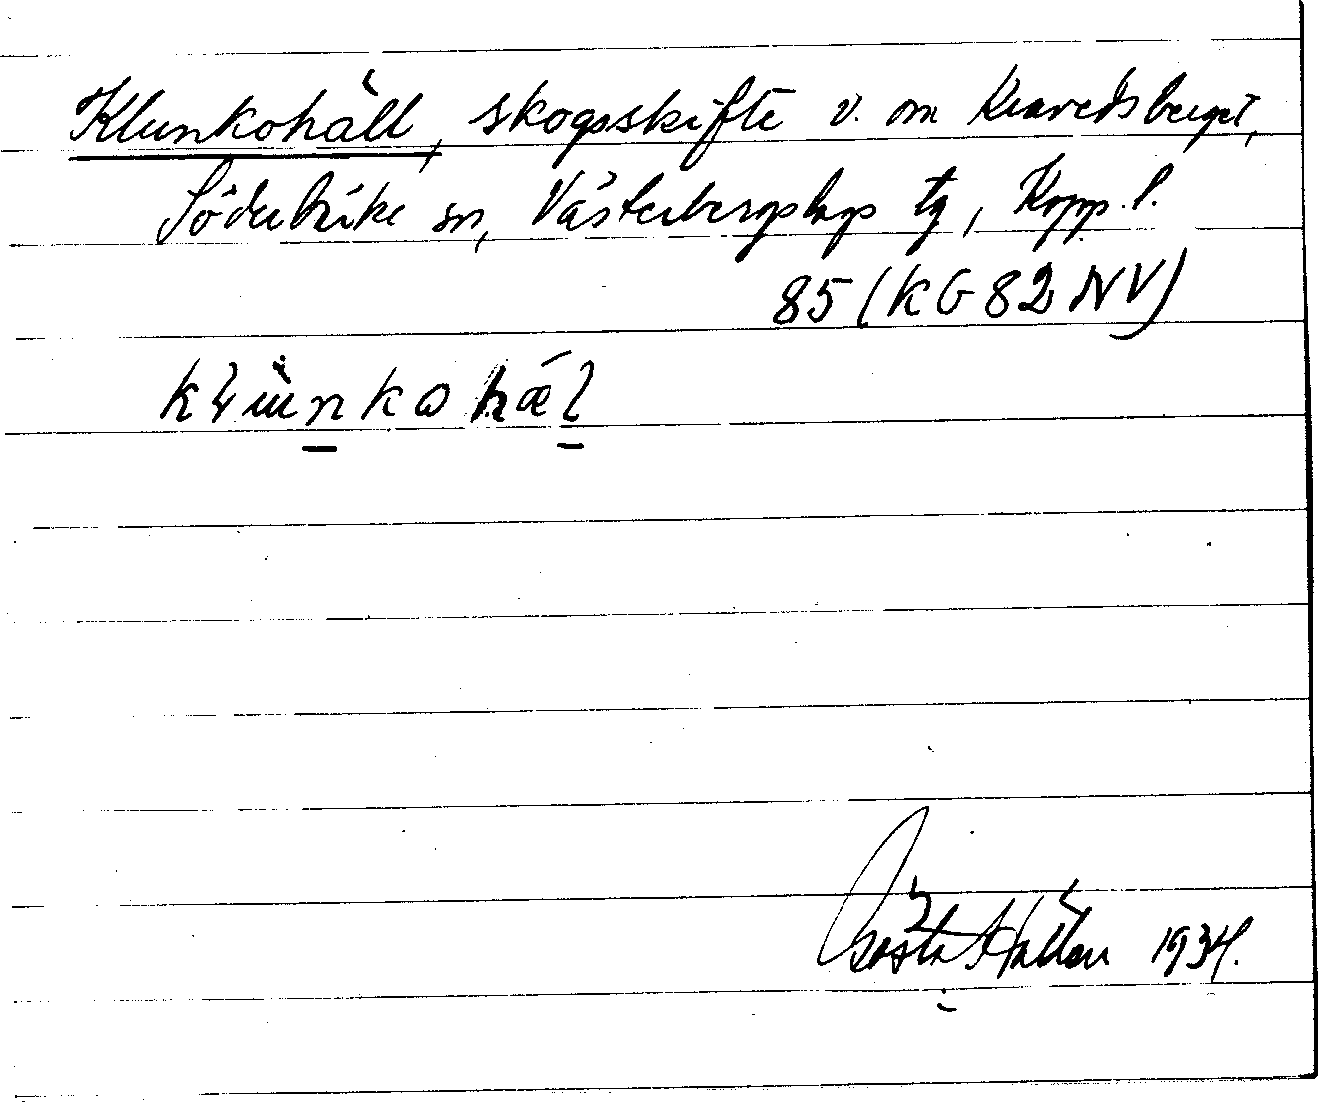 Klunkohäll, skogsskifte v. om Kravedsberget,
Söderbärke sn, Västerbergslags tg, Kopp. l.
85 (KG 82 NV)
Gösta Hallén 1934.